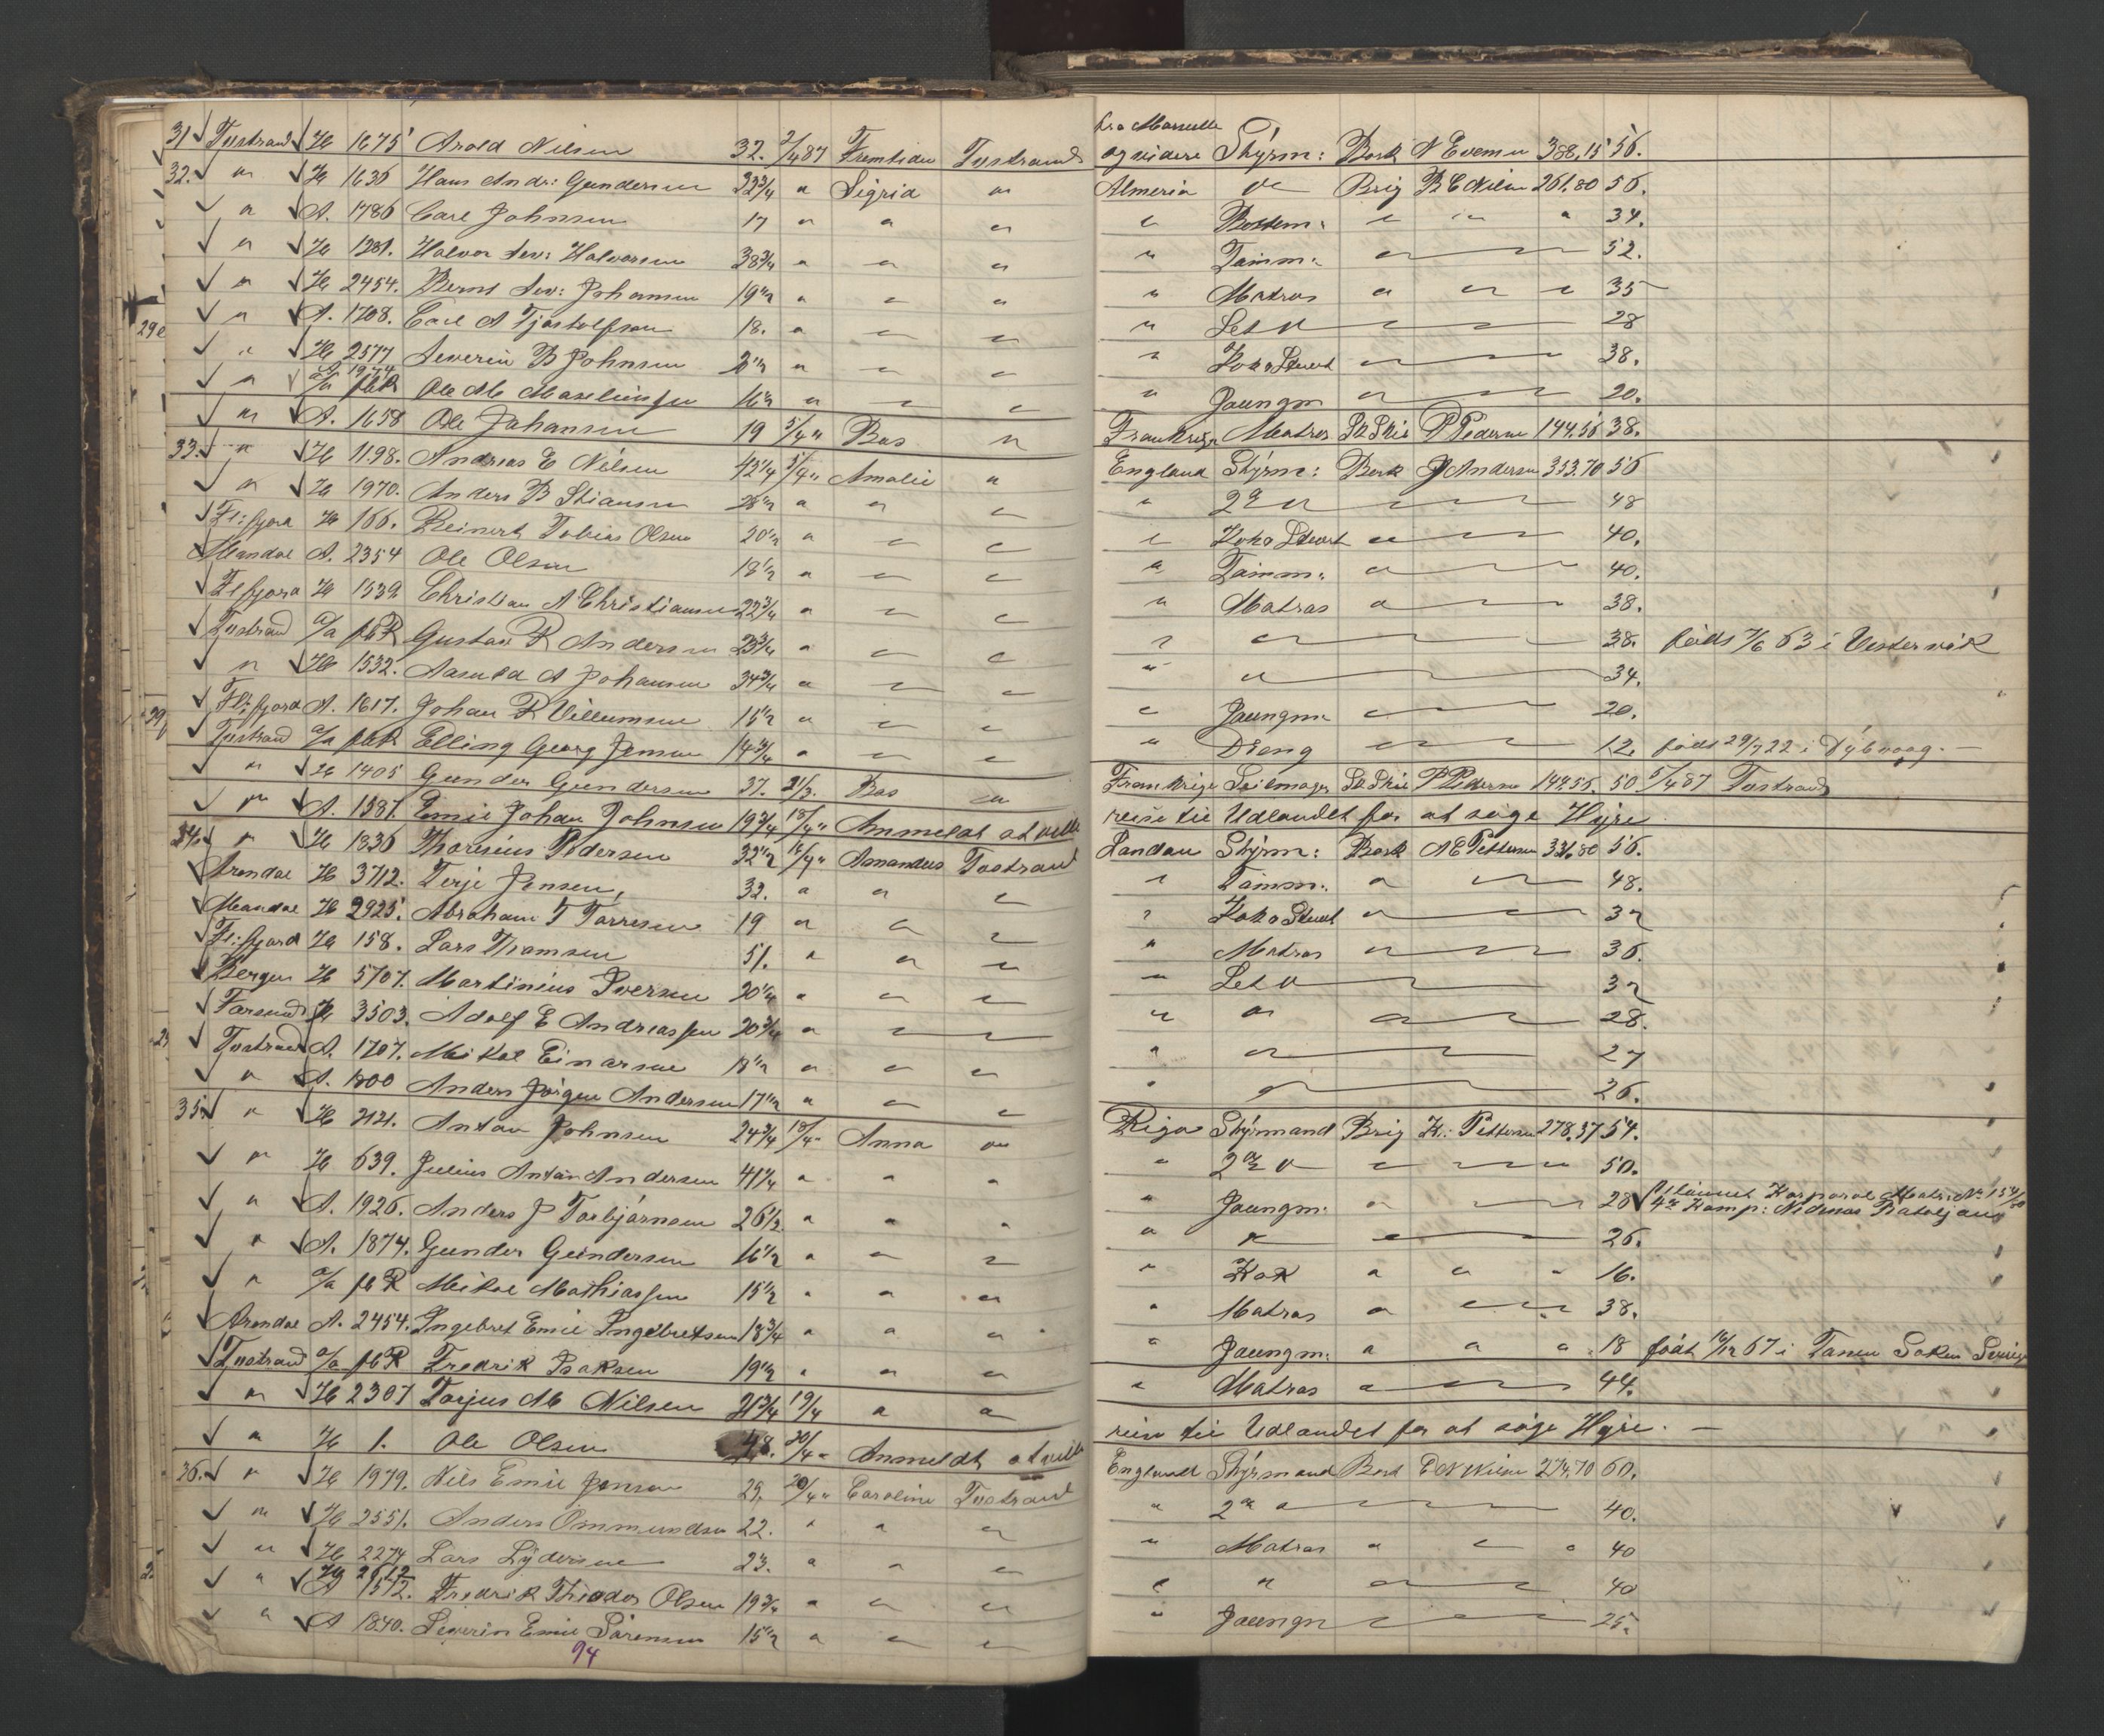 31 Tvstrand H 1675 Arold Nilsen 32. 2/4 87 Fremtiden Tvstrand fra Marseille og videre Styrm: Bark N Evensen 388,15 56.
32. " H 1636 Hans Andr: Gundersen 32 3/4 " Sigrid " Almeria do Brig B C Nilsen 261,80 56.
" A. 1786 Carl Johnsen 17 " " " " Bestem: " " " 34.
" H 1281. Halvor Sev: Halvorsen 38 3/4 " " " " Tømm: " 52.
" H 2454. Bernt Sev: Johansen 19 1/2 " " " " Matros " " " 35
" A. 1708. Carl A Tjøstolfsen 18. " " " " Let do 28
" H 2577 Severin B Johnsen " " " " Kok & Stuert " 38.
" A 1974 a/a p b R Ole M 16 1/2 " " " " Jaungm " 20.
" A. 1658 Ole Johansen 19 5/4 " Bas " Frankrige Matros Sk Skib P Pedersen 144,56 38.
33. " H 1198. Andreas E Nilsen 43 1/4 5/4 " Amalie " England Styrm: Bark J Andersen 353.70 56
" H 1970. Anders B Stiansen 28 1/2 " " " " 2den do 48
Fl:fjord H 166. Reinert Tobias Olsen 20 1/2 " " " " Kok & Stuert " 40.
Mandal A. 2354 Ole Olsen 18 1/2 " " " " Tømm: " 40.
Fl:fjord H 1539 Christian A Christiansen 22 3/4 " " " " Matros " 38.
Tvstrand a/a p b R Gustav R Andersen 23 3/4 " " " " " 38. født 7/6 63 i Vestervik
" H 1532. Aasuld A Johansen 34 3/4 " " " " " 34.
Fl:fjord A. 1617. Johan R Villumsen 15 1/2 " " " " Jaungm " 20.
Tvstrand a/a p b R Elling Georg Jensen 14 3/4 " " " " Dreng " 12. født 29/7 22 i Dybvaag. —
" H 1405 Gunder Gundersen 37. 21/3. Bas " Frankrige Seilmager Sk Skib P Pedersen 144,56. 50 5/4 87 Tvstrand
" A. 1587. Emil Johan Johnsen 19 3/4 15/4 " Anmeldt at ville reise til Udlandet for at søge Hyre
34. " H 1836 Thorinius Pedersen 32 1/2 16/4 " Amandus Tvstrand Landau Styrm: Bark A E Pettersen 331,80 56.
Arendal H 3712. Terje Jensen, 32. " " " " Tømm: " " 48.
Mandal H 2925. Abraham T Tørresen 19 " " " " Kok & Stuert " 32
Fl:fjord H 158. Lars Thomsen 51. " " " " Matros " 36.
Bergen H 5707. Martinius Iversen 20 1/4 " " " " Let do 32
Farsund H 3503. Adolf E Andreassen 20 3/4 " " " " " " 28.
Tvstrand A. 1707. Mikal Einarsen 18 1/2 " " " " " 27
" A. 1800 Anders Jørgen Andersen 17 1/2 " " " " " 26.
35. " H 2121. Anton Johnsen 24 3/4 18/4 " Anna " Riga Styrmand Brig K: Pettersen 278,37 54.
" H 639. Julius Anton Andersen 41 1/4 " " " " 2den do " 50.
" A. 1926. Anders J Torbjørnsen 26 1/2 " " " " Jaungm: " 28 Korporal Matr: No 154/80 4de Komp: Nedenæs Bataljon
" A. 1874. Gunder Gundersen 16 1/2 " " " " " " 26.
" a/a p b R Mikal Mathiassen 15 1/2 " " " " Kok " " " 16.
Arendal A. 2454. Ingebret Emil Ingebretsen 18 3/4 " " " " Matros " 38.
Tvstrand a/a p b R Fredrik Isaksen 19 1/2 " " " " Jaungm: " " " 18 født 16/12 67 i Tanum Sokn Sverige
" H 2307 Torjus M Nilsen 21 3/4 19/4 " " " Matros " 44.
" H 1. Ole Olsen 48. 20/4 " Anmeldt at ville reise til Udlandet for at søge Hyre. —
36. " H 1979. Nils Emil Jensen 29. 20/4 " Caroline Tvstrand England Styrmand Bark E N Nilsen 274,70 60.
" H 2551. Anders Ommundsen 22. " " " " 2den " 40.
" H 2274 Lars Lydersen 23. " " " " Matros " " " 40
" H 2612 A 1512. Fredrik Theodor Olsen 19 3/4 " " " " " " 40
" A 1840. Severin Emil Sørensen 15 1/2 " " " " Jaungm " 25.
94